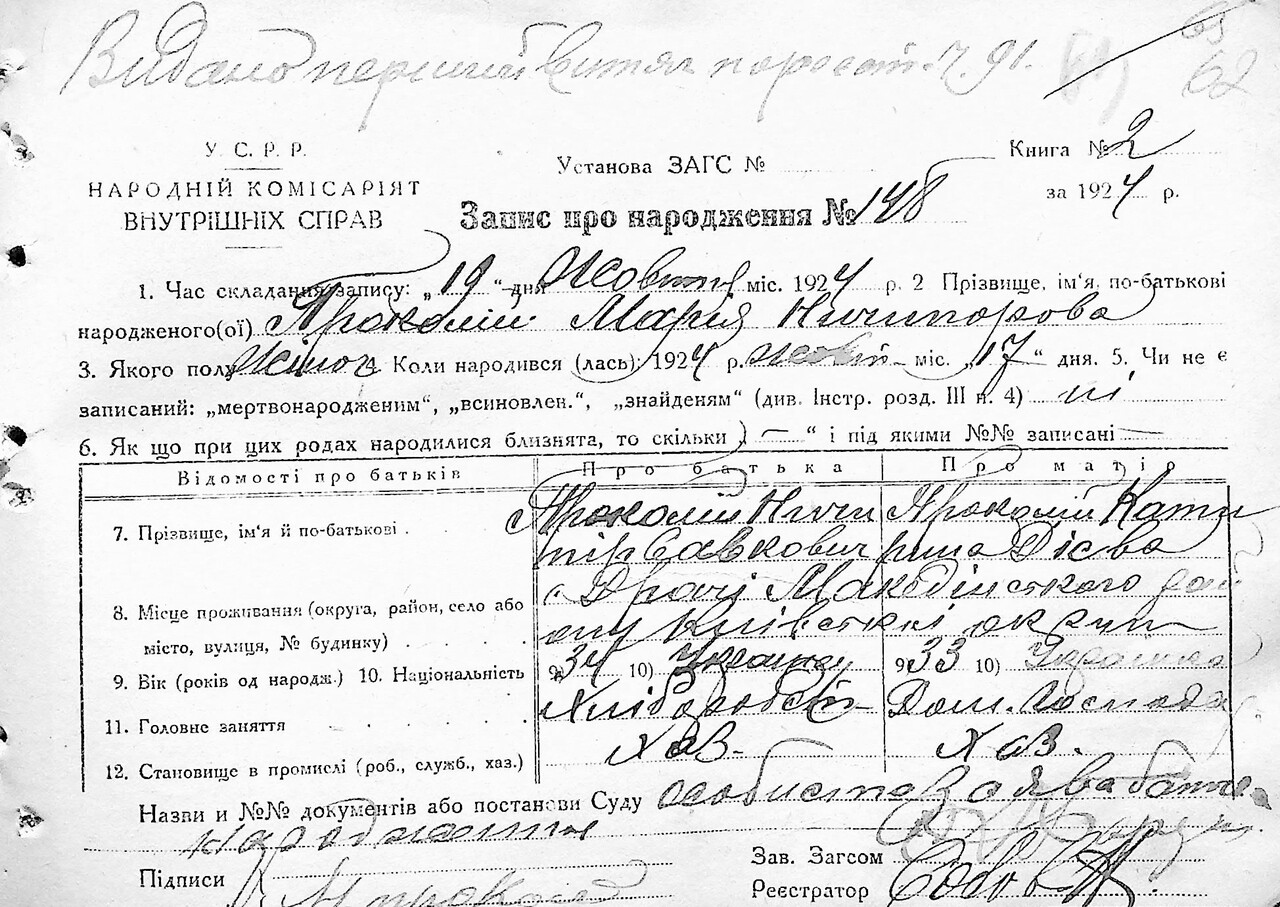 Видано перший витяг по 91.
62
У. С. Р. Р.
НАРОДНІЙ КОМІСАРІЯТ
ВНУТРІШНІХ СПРАВ
Установа ЗАГС №
Книга № 2
за 1924 р.
Запис про народження № 148
1. Час складання запису: „19“ дня Жовтня міс. 1924 р. 2 Прізвище, ім'я, по-батькові
народженого(ої) Прокопій Марія Ничипорова
3. Якого полу жіноч. Коли народився (лась): 1924 р. жовт міс. „17“ дня. 5. Чи не є
записаний: „мертвонародженим“, „всиновлен.“, „знайденям“ (див. Інстр. розд. III п. 4) ні
6. Як що при цих родах народилися близнята, то скільки — “ і під якими №№ записані —
Відомості про батьків Про батька Про матір
7. Прізвище, ім'я й по-батькові . Прокопій Ничи Прокопій Кате
пір Савкович рина
8. Місце проживання (округа, район, село або
місто, вулиця, № будинку) . . .
Македонського рай
ону Київської округи
9. Вік (років од народж.) 10. Національність 9) 34 10) 9) 33 10)
11. Головне заняття Хліборобств Дом. Господар
12. Становище в промислі (роб., служб., хаз.) Хаз. Хаз.
Назви и №№ документів або постанови Суду особиста заява батька
народження
Зав. Загсом
Підписи
Реєстратор